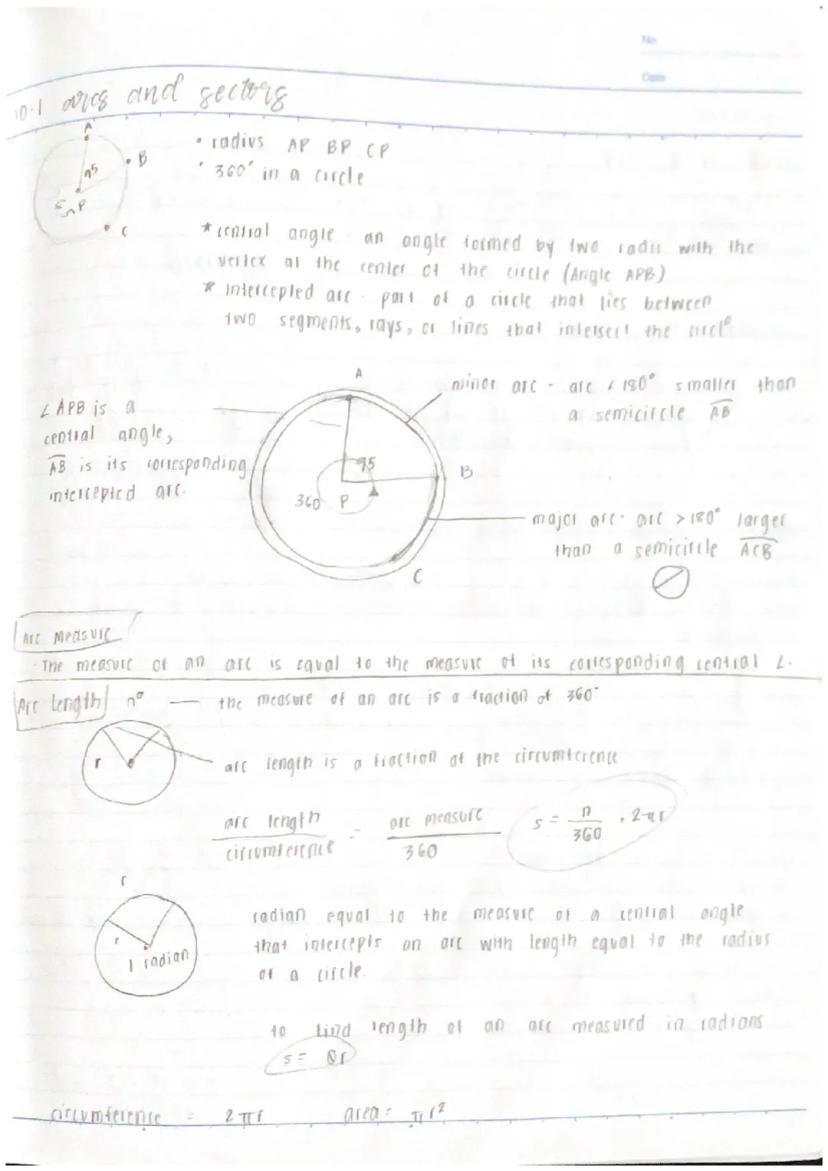 No.
Date
10.1 arcs and sectors
A
B
95
P
C
• radius AP BP CP
• 360° in a circle
* central angle - an angle formed by two radii with the
vertex at the center of the circle (Angle APB)
* intercepted arc - part of a circle that lies between
two segments, rays, or lines that intersect the circle
A
minor arc - arc < 180° smaller than
a semicircle AB
∠ APB is a
central angle,
AB is its corresponding
intercepted arc.
95
B
360 P
major arc - arc > 180° larger
than a semicircle ACB
C
Arc Measure
- The measure of an arc is equal to the measure of its corresponding central ∠.
Arc length n° — the measure of an arc is a fraction of 360°
r
arc length is a fraction of the circumference
arc length / circumference = arc measure / 360
s = n/360 · 2πr
r
r
1 radian
radian equal to the measure of a central angle
that intercepts an arc with length equal to the radius
of a circle.
to find length of an arc measured in radians
s = θr
circumference = 2πr area = πr²